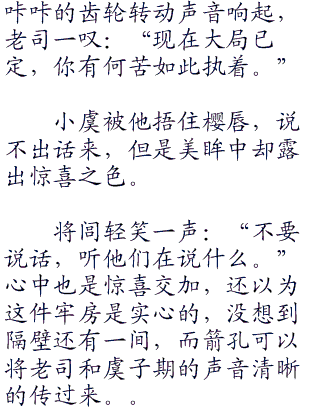 咔咔的齿轮转动声音响起，
老司一叹：“现在大局已
定，你有何苦如此执着。”
小虞被他捂住樱唇，说
不出话来，但是美眸中却露
出惊喜之色。
将闾轻笑一声：“不要
说话，听他们在说什么。”
心中也是惊喜交加，还以为
这件牢房是实心的，没想到
隔壁还有一间，而箭孔可以
将老司和虞子期的声音清晰
的传过来。。